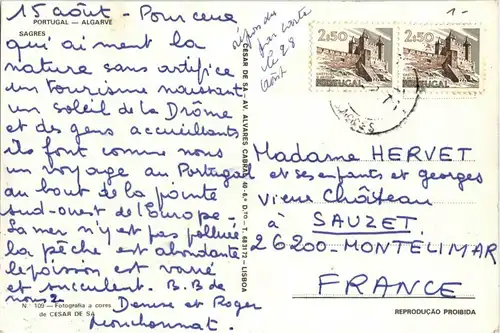 15 août - Pour ceux
PORTUGAL — ALGARVE
SAGRES
qui aiment la
nature sans artifice
un tourisme naissant
un soleil de la Drôme
et des gens accueillants
ils font comme nous
un voyage au Portugal
au bout de la pointe
sud-ouest de l'Europe -
La mer n'y est pas polluée
la pêche est abondante
le poisson est varié
et succulent. B.B de
nous 2 Denise et Roger
N. 109 - Fotografia a cores
de CESAR DE SÁ
répondu
par carte
le 28
août
CESAR DE SÁ - AV. ALVARES CABRAL, 40-6.º D.to - T. 683172 - LISBOA
1-
2$50 2$50
PORTUGAL PORTUGAL
Madame HERVET
et ses enfants et georges
vieux Château
à SAUZET
26200-MONTELIMAR
FRANCE
REPRODUÇÃO PROIBIDA